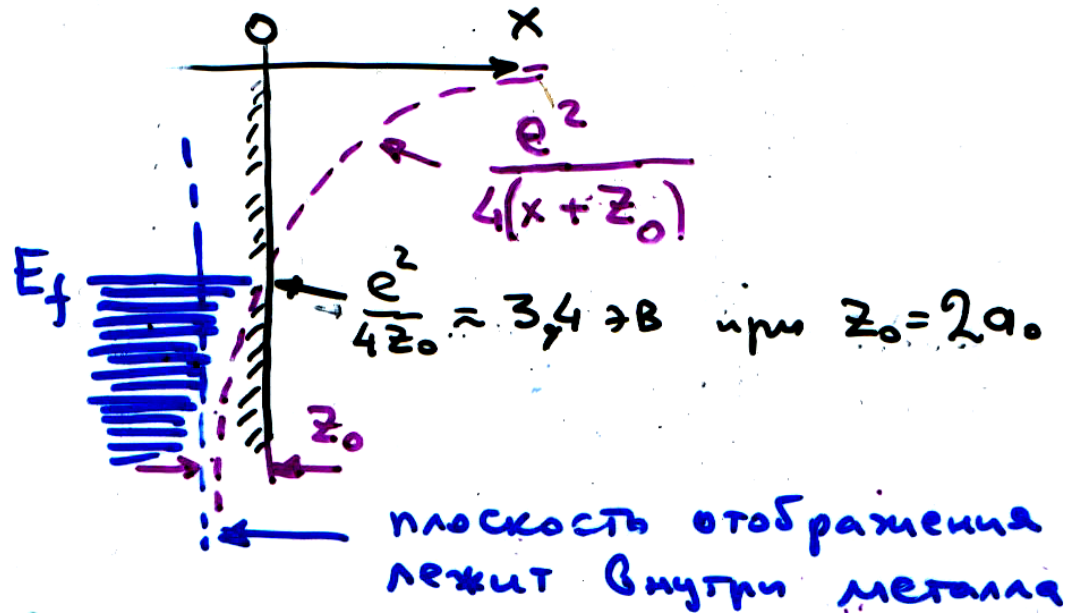 O x
e²
4(x + Z₀)
E_f
e²/4Z₀ ≈ 3,4 эВ при Z₀ = 2a₀
Z₀
плоскость отображения
лежит внутри металла